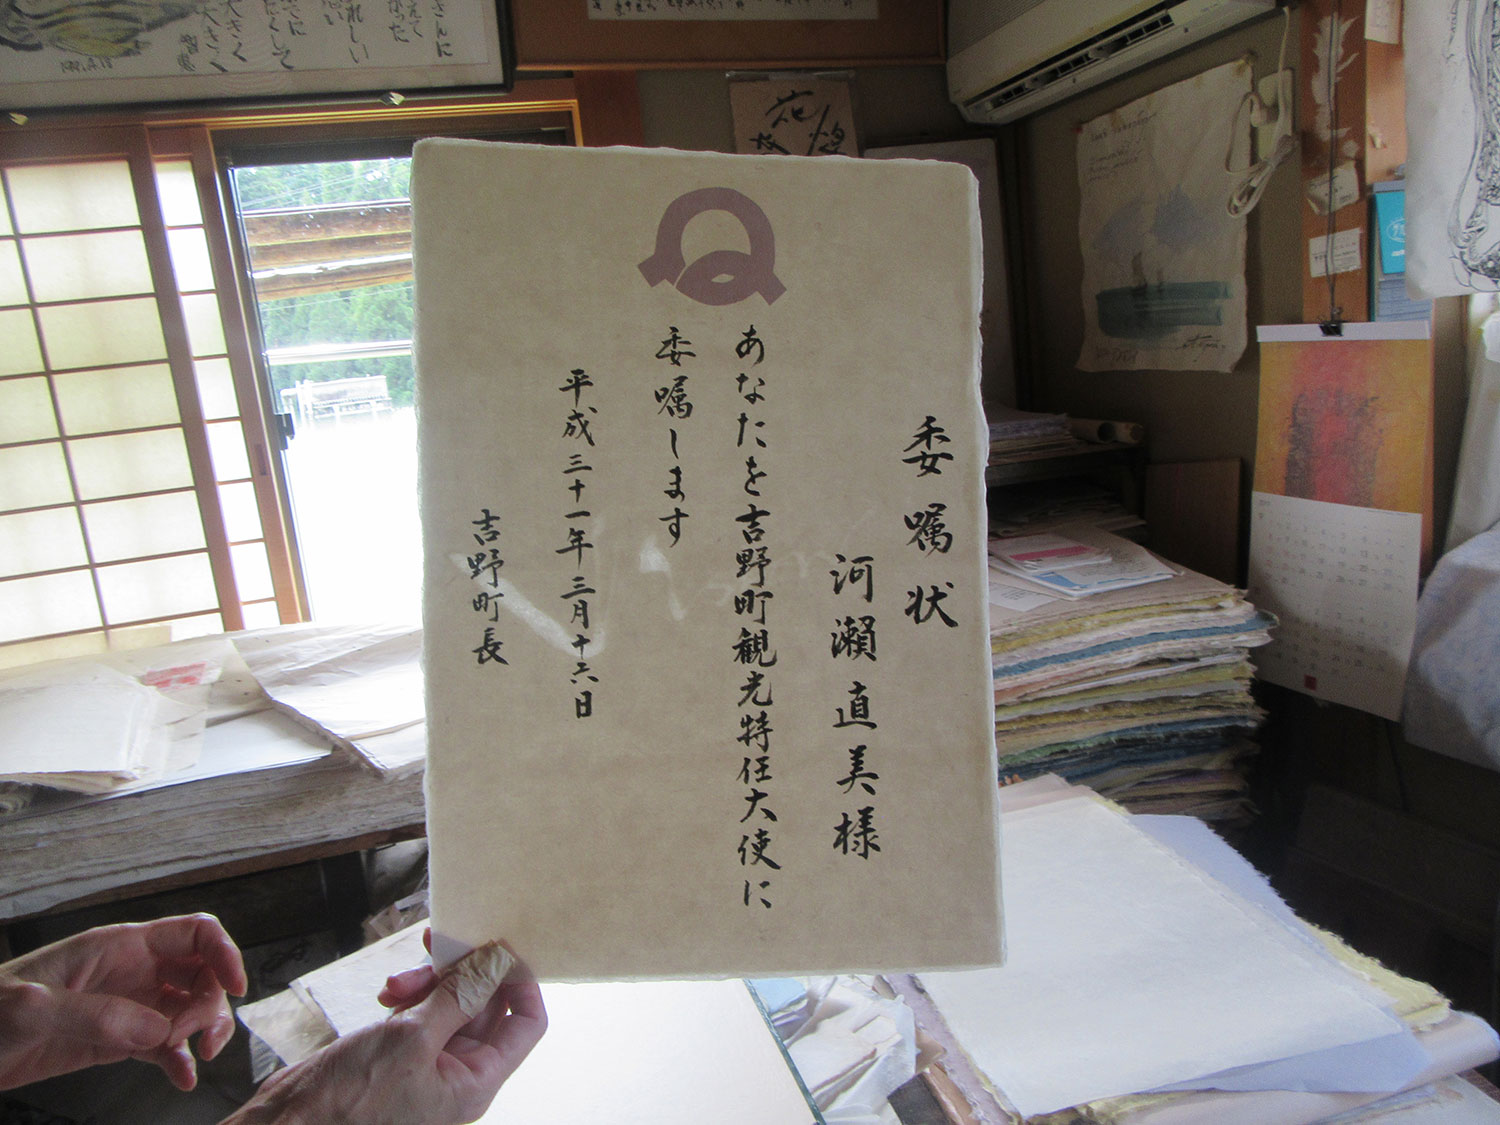 委嘱状
河瀨直美様
あなたを吉野町観光特任大使に
委嘱します
平成三十一年三月十六日
吉野町長